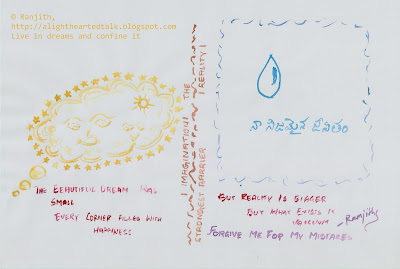 © Ranjith,
http://alightheartedtalk.blogspot.com
Live in dreams and confine It
THE BEAUTIFUL DREAM WAS
SMALL
EVERY CORNER FILLED WITH
HAPPINESS
! IMAGINATION! THE
STRONGEST BARRIER ! REALITY!
నా నిజమైన జీవితం
BUT REALITY IS BIGGER
BUT WHAT EXISTS IS
Ranjith
FORGIVE ME FOR MY MISTAKES